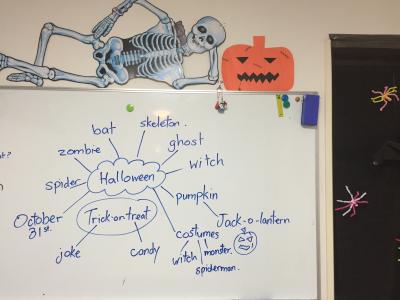 bat
skeleton.
ghost
zombie
witch
Halloween
spider
pumpkin
October
31st.
Trick-or-treat
Jack-o-lantern
costumes
joke
candy
witch
monster.
spiderman.